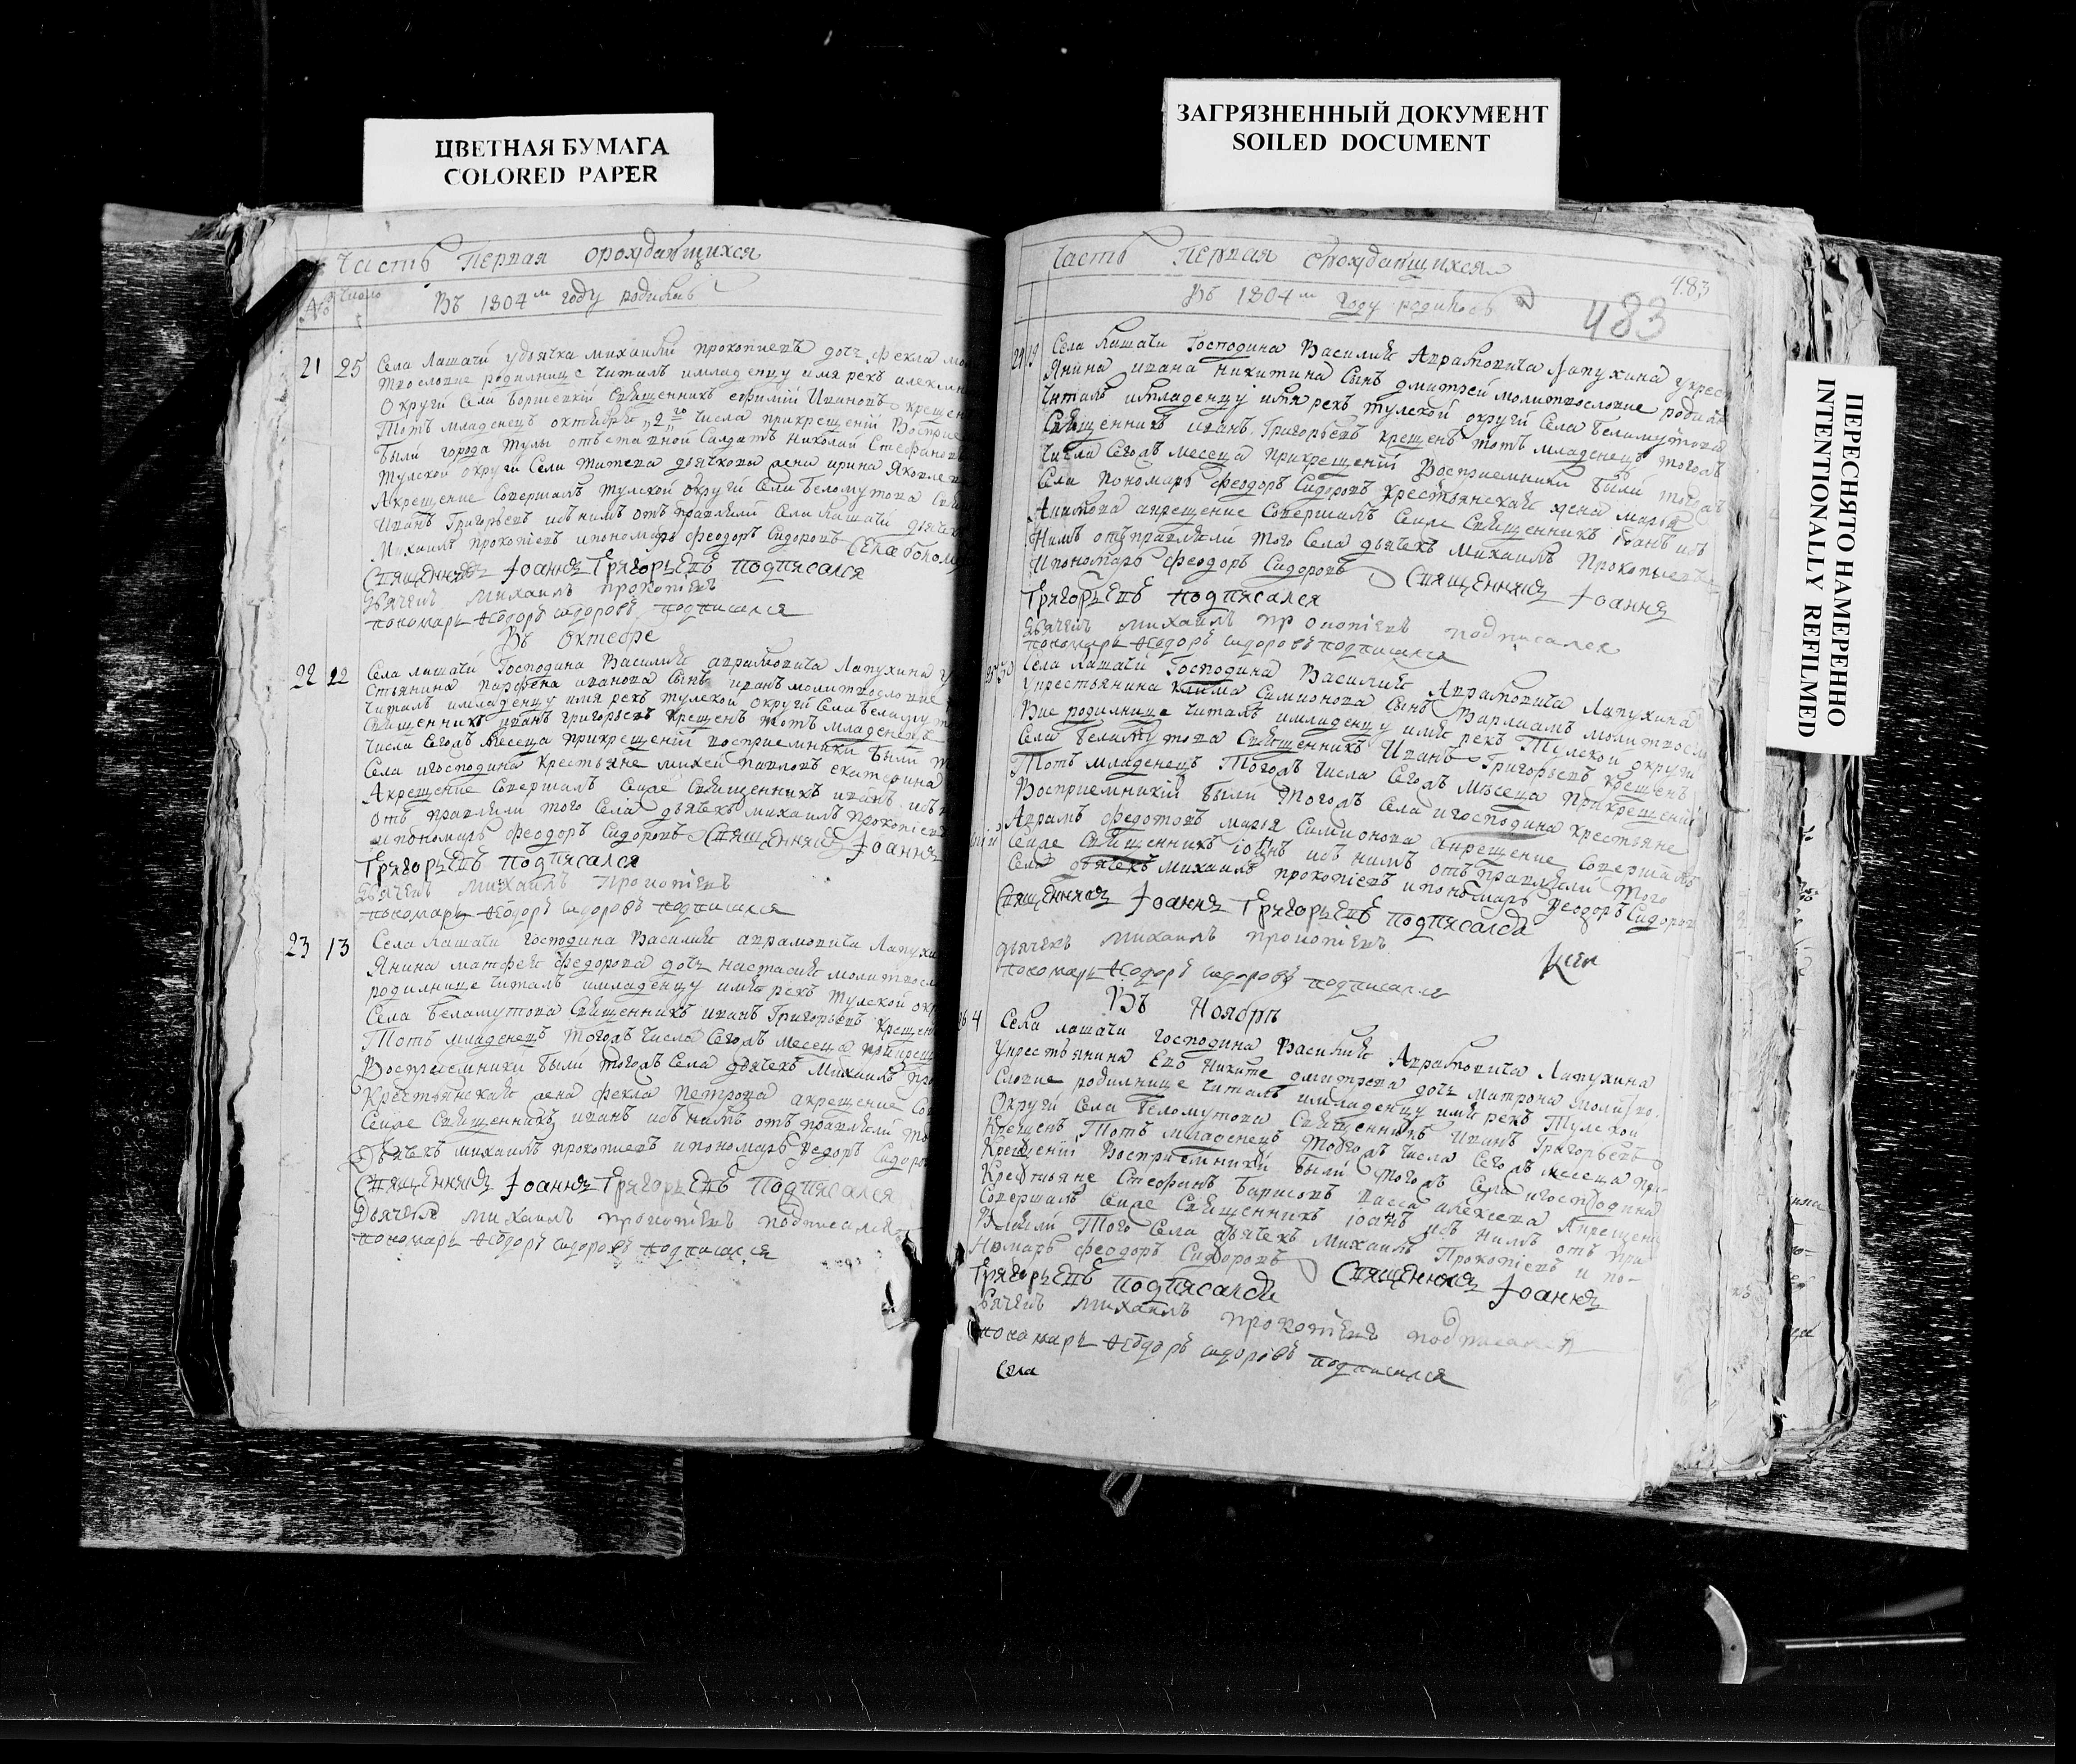 ЦВЕТНАЯ БУМАГА
COLORED PAPER
ЗАГРЯЗНЕННЫЙ ДОКУМЕНТ
SOILED DOCUMENT
ПЕРЕСНЯТО НАМЕРЕННО
INTENTIONALLY REFILMED
Часть Первая орождающихся
№ Число
Въ 1804м году родились
21 25 Села Лашачи удьячка михаила прокопиева дочь фекла
твословие родилнице читалъ имладенцу имя рекъ
Округи Села священникъ ефимий Ивановъ крещен
Тотъ младенецъ октября 2 числа прикрещении Воспри
были города Тулы отъставной Салдатъ Николай Стефановъ
тулской округи Села дьячкова жена ирина Яковлев
Акрещение Совершалъ тулской округи Села беломутова
Иванъ Григорьевъ исънимъ отъправляли Села Лашачи дьячек
Михаилъ прокопиевъ ипономарь Феодоръ Сидоровъ Села
Священникъ Іоаннъ Григорьевъ подписался
Дьячекъ михаилъ прокопиевъ
пономарь Ѳеодоръ сидоровъ подписался
Въ Октебре
22 22 Села лашачи Господина Василия аврамовича Лапухина у
Стьянина парфена иванова Сынъ иванъ молитвословие
Читалъ имладенцу имя рекъ тулской округи Села беламут
Священникъ иванъ григорьевъ крещенъ тотъ младенецъ
Числа Сегожъ Месеца прикрещении восприемники были
Села игосподина крестьяне михей павловъ екатерина
Акрещение Совершалъ Священникъ иванъ исъ
отъ правляли того Села дьячекъ михаилъ прокопиевъ
ипономарь феодоръ Сидоровъ Священникъ Іоаннъ
Григорьевъ подписался
Дьячекъ михаилъ Прокопиевъ
пономарь Ѳеодоръ сидоровъ подписался
23 13 Села Лашачи господина Василия аврамовича Лапухи
Янина матфея федорова дочь настасия молитвосл
родилнице читалъ имладенцу имя рекъ тулской окр
Села беламутова Священникъ иванъ Григорьевъ крещен
Тотъ младенецъ тогожъ числа Сегожъ месеца
Восприемники были тогожъ Села дьячекъ Михаилъ про
Крестьянская жена фекла Петрова акрещение Со
Священникъ иванъ исъ нимъ отъ правляли
Дьячекъ михаилъ прокопиевъ ипономарь Федоръ Сидоро
Священникъ Іоаннъ Григорьевъ Подписался
Дьячекъ михаилъ прокопиевъ подписался
пономарь Ѳеодоръ сидоровъ подписался
Часть Первая орождающихся
483
Въ 1804м году родилось
483
24 19 Села Лашачи Господина Василия Аврамовича Лапухина укрест
Янина ивана никитина Сынъ дмитрей молитвословие родилн
Читалъ имладенцу имя рекъ тулской округи Села беламутова
Священникъ иванъ Григорьевъ крещенъ тотъ младенецъ тогожъ
Числа Сегожъ месеца прикрещении Восприемники были тогожъ
Села пономарь феодоръ Сидоровъ крестьянская жена марья
акрещение Совершалъ Священникъ іоанъ исъ
Нимъ отъправляли того Села дьячекъ михаилъ Прокопиевъ
Ипономарь феодоръ Сидоровъ Священникъ Іоаннъ
Григорьевъ подписался
Дьячекъ михаилъ прокопиевъ подписался
пономарь Ѳеодоръ сидоровъ подписался
25 30 Села Лашачи Господина Василия Аврамовича Лапухина
укрестьянина Клима Симионова Сынъ Варлаамъ молитвосл
Вие родилнице читалъ имладенцу имя рекъ тулской округи
Села беламутова Священникъ Иванъ Григорьевъ крещенъ
Тотъ младенецъ Тогожъ числа Сегожъ Месеца Прикрещении
Восприемники были Тогожъ Села игосподина крестьяне
Аврамъ Федотовъ марья Симионова акрещение Совершалъ
Священникъ іоанъ исъ нимъ отъправляли того
Села дьячекъ михаилъ прокопиевъ ипономарь Феодоръ Сидоров
Священникъ Іоаннъ Григорьевъ подписался
дьячекъ михаилъ прокопиевъ
пономарь Ѳеодоръ сидоровъ подписался
Въ Ноябре
26 4 Села лашачи господина Василия Аврамовича Лапухина
укрестьянина Ево Никите дмитрева дочь матрона Молитво
Словие родилнице читалъ имладенцу имя рекъ Тулской
Округи Села беломутова Священникъ Иванъ Григорьевъ
Крещенъ Тотъ младенецъ Тогожъ числа Сегожъ месеца при
Крещении Восприемники были тогожъ Села игосподина
Крестьяне Стефанъ барисовъ васса алексева Акрещение
Совершалъ Священникъ іоанъ исъ нимъ отъ пра
Вляли Того Села дьячекъ михаилъ Прокопиевъ и по-
Номарь Феодоръ Сидоровъ Священникъ Іоаннъ
Григорьевъ подписался
Дьячекъ михаилъ прокопиевъ подписался
пономарь Ѳеодоръ сидоровъ подписался
Села